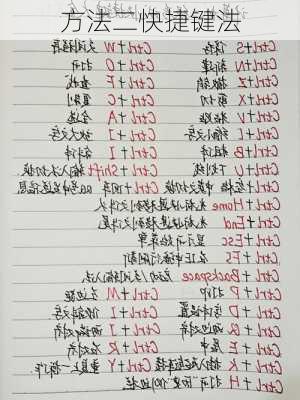 方法二快捷键法
Ctrl+S 保存 Ctrl+W 关闭程序
Ctrl+N 新建 Ctrl+O 打开
Ctrl+Z 撤销 Ctrl+F 查找
Ctrl+X 剪切 Ctrl+C 复制
Ctrl+V 粘贴 Ctrl+A 全选
Ctrl+[ 缩小文字 Ctrl+] 放大文字
Ctrl+B 粗体 Ctrl+I 斜体
Ctrl+U 下划线 Ctrl+Shift 输入法切换
Ctrl+空格 中英文切换 Ctrl+回车 QQ号中发送信息
Ctrl+Home 光标快速移到文件头
Ctrl+End 光标快速移到文件尾
Ctrl+Esc 显示开始菜单
Ctrl+F5 在IE中强行刷新
Ctrl+Backspace 启动/关闭输入法
Ctrl+P 打印 Ctrl+M 左边距
Ctrl+D 字体设置 Ctrl+J
Ctrl+ 对齐 Ctrl+ 对齐
Ctrl+E 居中 Ctrl+R 右对齐
Ctrl+K 插入超链接 Ctrl+Y 重复上一操作
Ctrl+H 打开 对话框